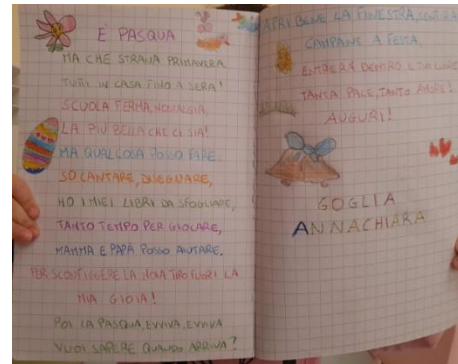 È PASQUA
MA CHE STRANA PRIMAVERA
TUTTI IN CASA FINO A SERA!
SCUOLA FERMA, NOSTALGIA,
LA PIÙ BELLA CHE CI SIA!
MA QUALCOSA POSSO FARE.
SO CANTARE, DISEGNARE,
HO I MIEI LIBRI DA SFOGLIARE,
TANTO TEMPO PER GIOCARE,
MAMMA E PAPÀ POSSO AIUTARE.
PER SCONFIGGERE LA NOIA TIRO FUORI LA
MIA GIOIA!
POI LA PASQUA, EVVIVA, EVVIVA
VUOI SAPERE QUANDO ARRIVA?
APRI BENE LA FINESTRA, SENTIRAI
CAMPANE A FESTA.
ENTRERÀ DENTRO E
TANTA PACE, TANTO AMORE!
AUGURI!
GOGLIA
ANNACHIARA